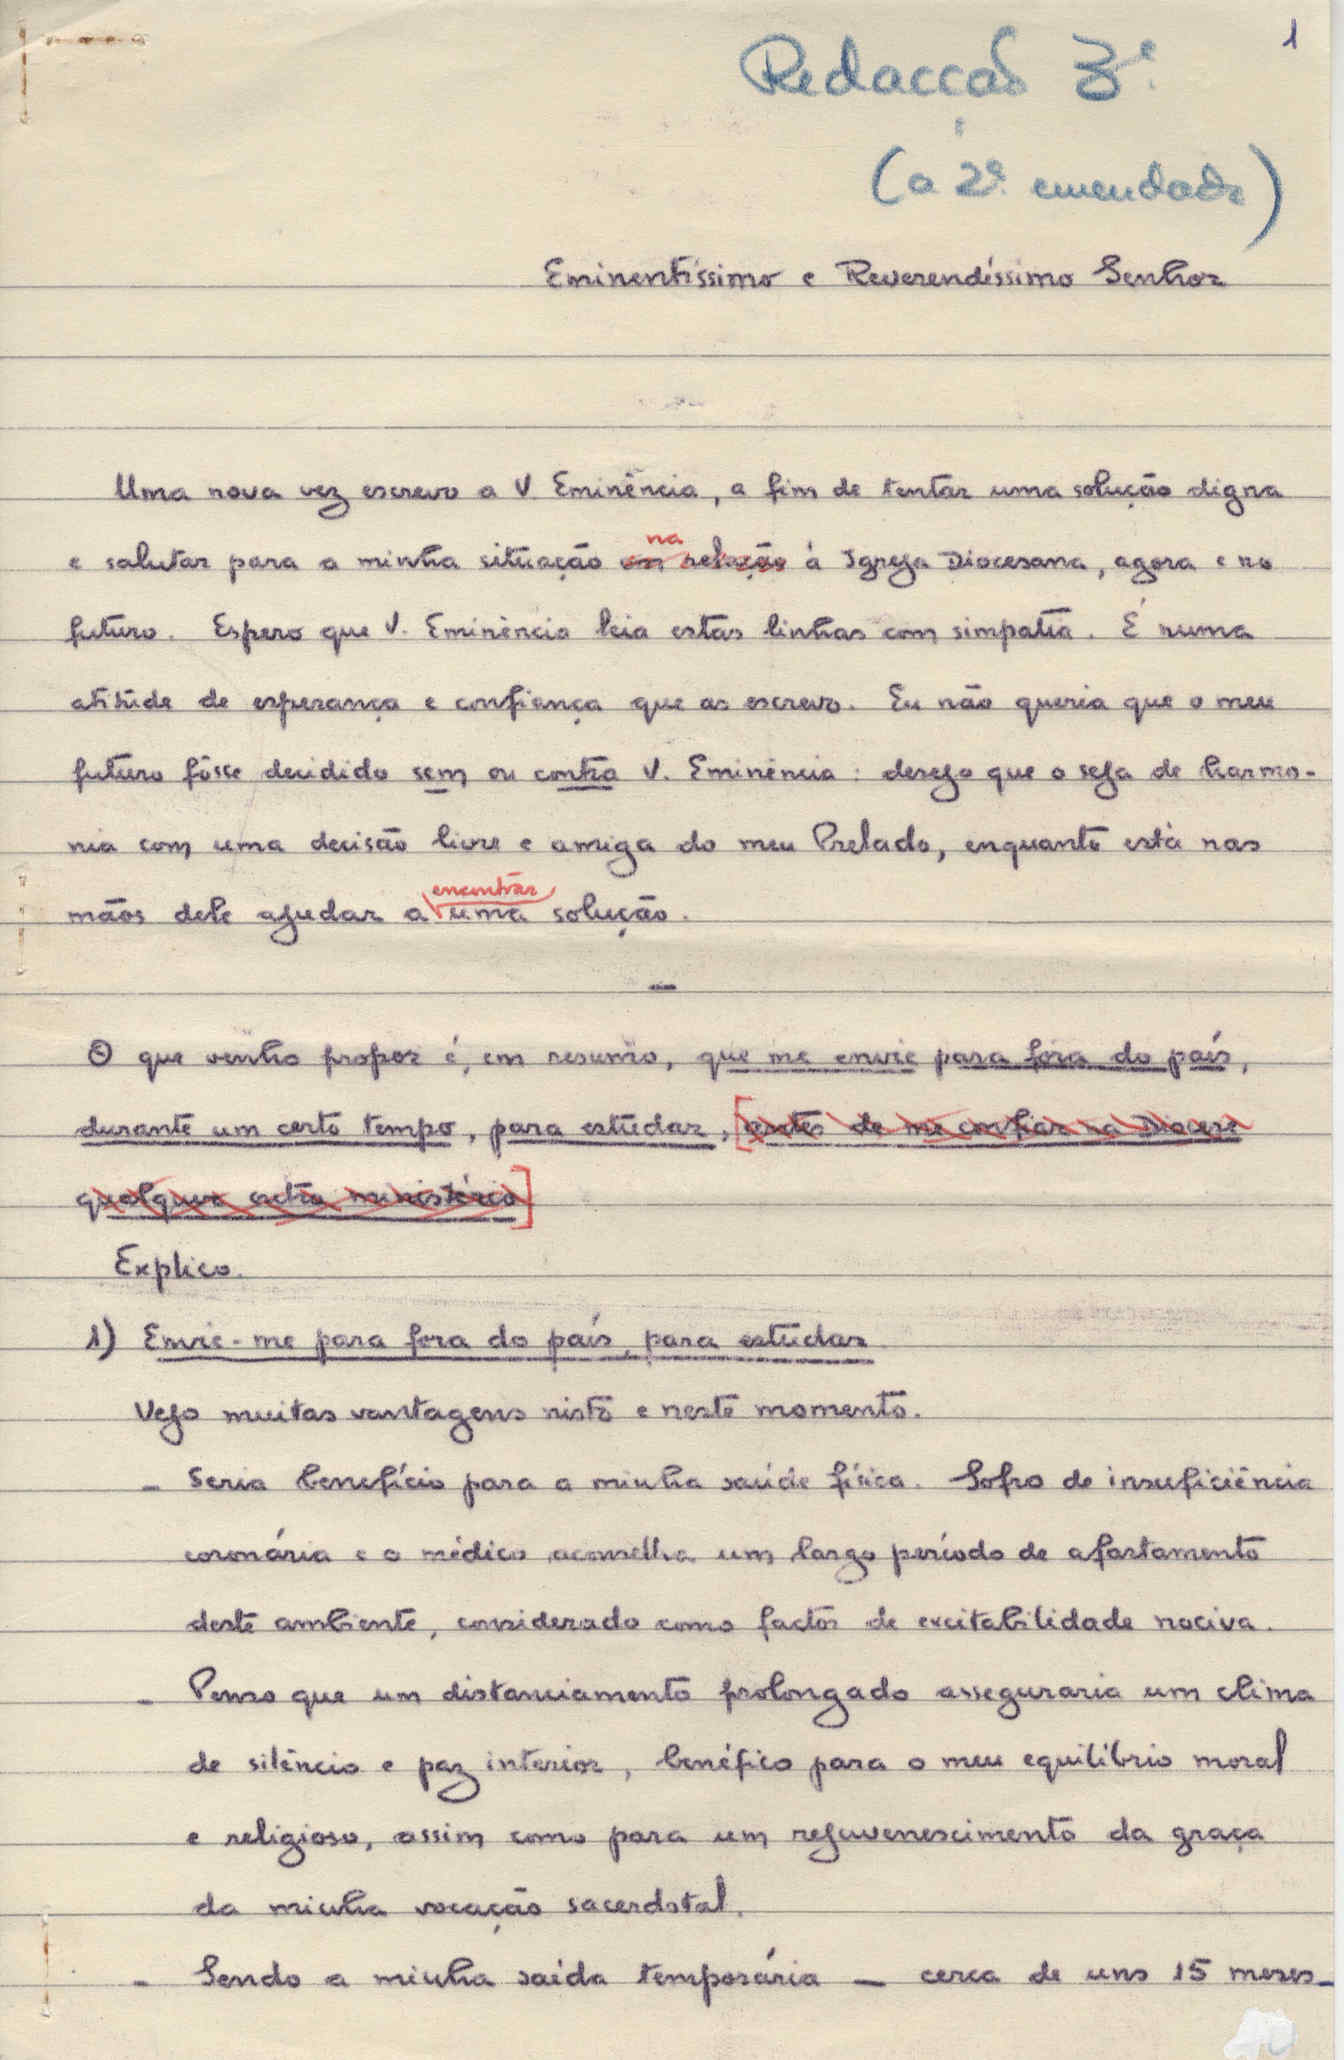 1
Redacção 3ª.
(a 2ª. emendada)
Eminentíssimo e Reverendíssimo Senhor
Uma nova vez escrevo a V. Eminência, a fim de tentar uma solução digna
na
e salutar para a minha situação em relação à Igreja Diocesana, agora e no
futuro. Espero que V. Eminência leia estas linhas com simpatia. É numa
atitude de esperança e confiança que as escrevo. Eu não queria que o meu
futuro fôsse decidido sem ou contra V. Eminência: desejo que o seja de harmo-
nia com uma decisão livre e amiga do meu Prelado, enquanto está nas
encontrar
mãos dele ajudar a uma solução.
—
O que venho propor é, em resumo, que me envie para fora do país,
durante um certo tempo, para estudar, [antes de me confiar na Diocese
qualquer outro ministério]
Explico.
1) Envie-me para fora do país, para estudar
Vejo muitas vantagens nisto e neste momento.
- Seria benefício para a minha saúde física. Sofro de insuficiência
coronária e o médico aconselha um largo período de afastamento
deste ambiente, considerado como factor de excitabilidade nociva.
- Penso que um distanciamento prolongado asseguraria um clima
de silêncio e paz interior, benéfico para o meu equilíbrio moral
e religioso, assim como para um rejuvenescimento da graça
da minha vocação sacerdotal.
- Sendo a minha saída temporária — cerca de uns 15 meses —